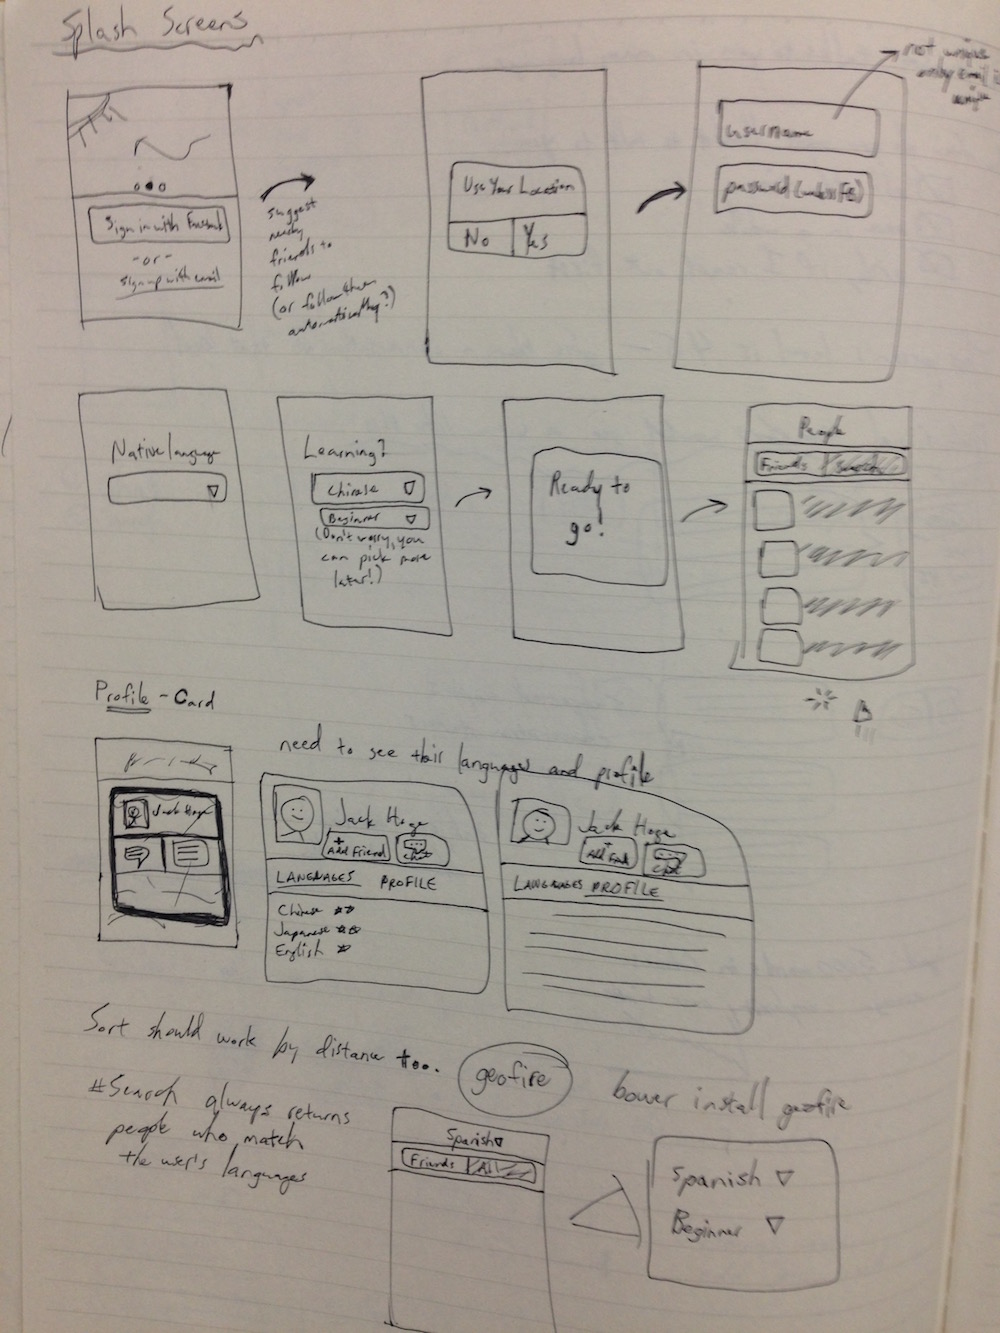 Splash Screens
not unique
only email is
unique
Sign in with Facebook
-or-
sign up with email
suggest
nearby
friends to
follow
(or follow them
automatically?)
Use Your Location
No Yes
username
password (unless FB)
Native language
Learning?
Chinese
Beginner
(Don't worry, you
can pick more
later!)
Ready to
go!
People
Friends Search
Profile - Card
need to see their languages and profile
Jack Hoge
Jack Hoge
+
Add Friend
Chat
LANGUAGES PROFILE
Chinese
Japanese
English
Jack Hoge
+
Add Friend
Chat
LANGUAGES PROFILE
Sort should work by distance too.
geofire
bower install geofire
#Search always returns
people who match
the user's languages
Spanish
Friends All
Spanish
Beginner